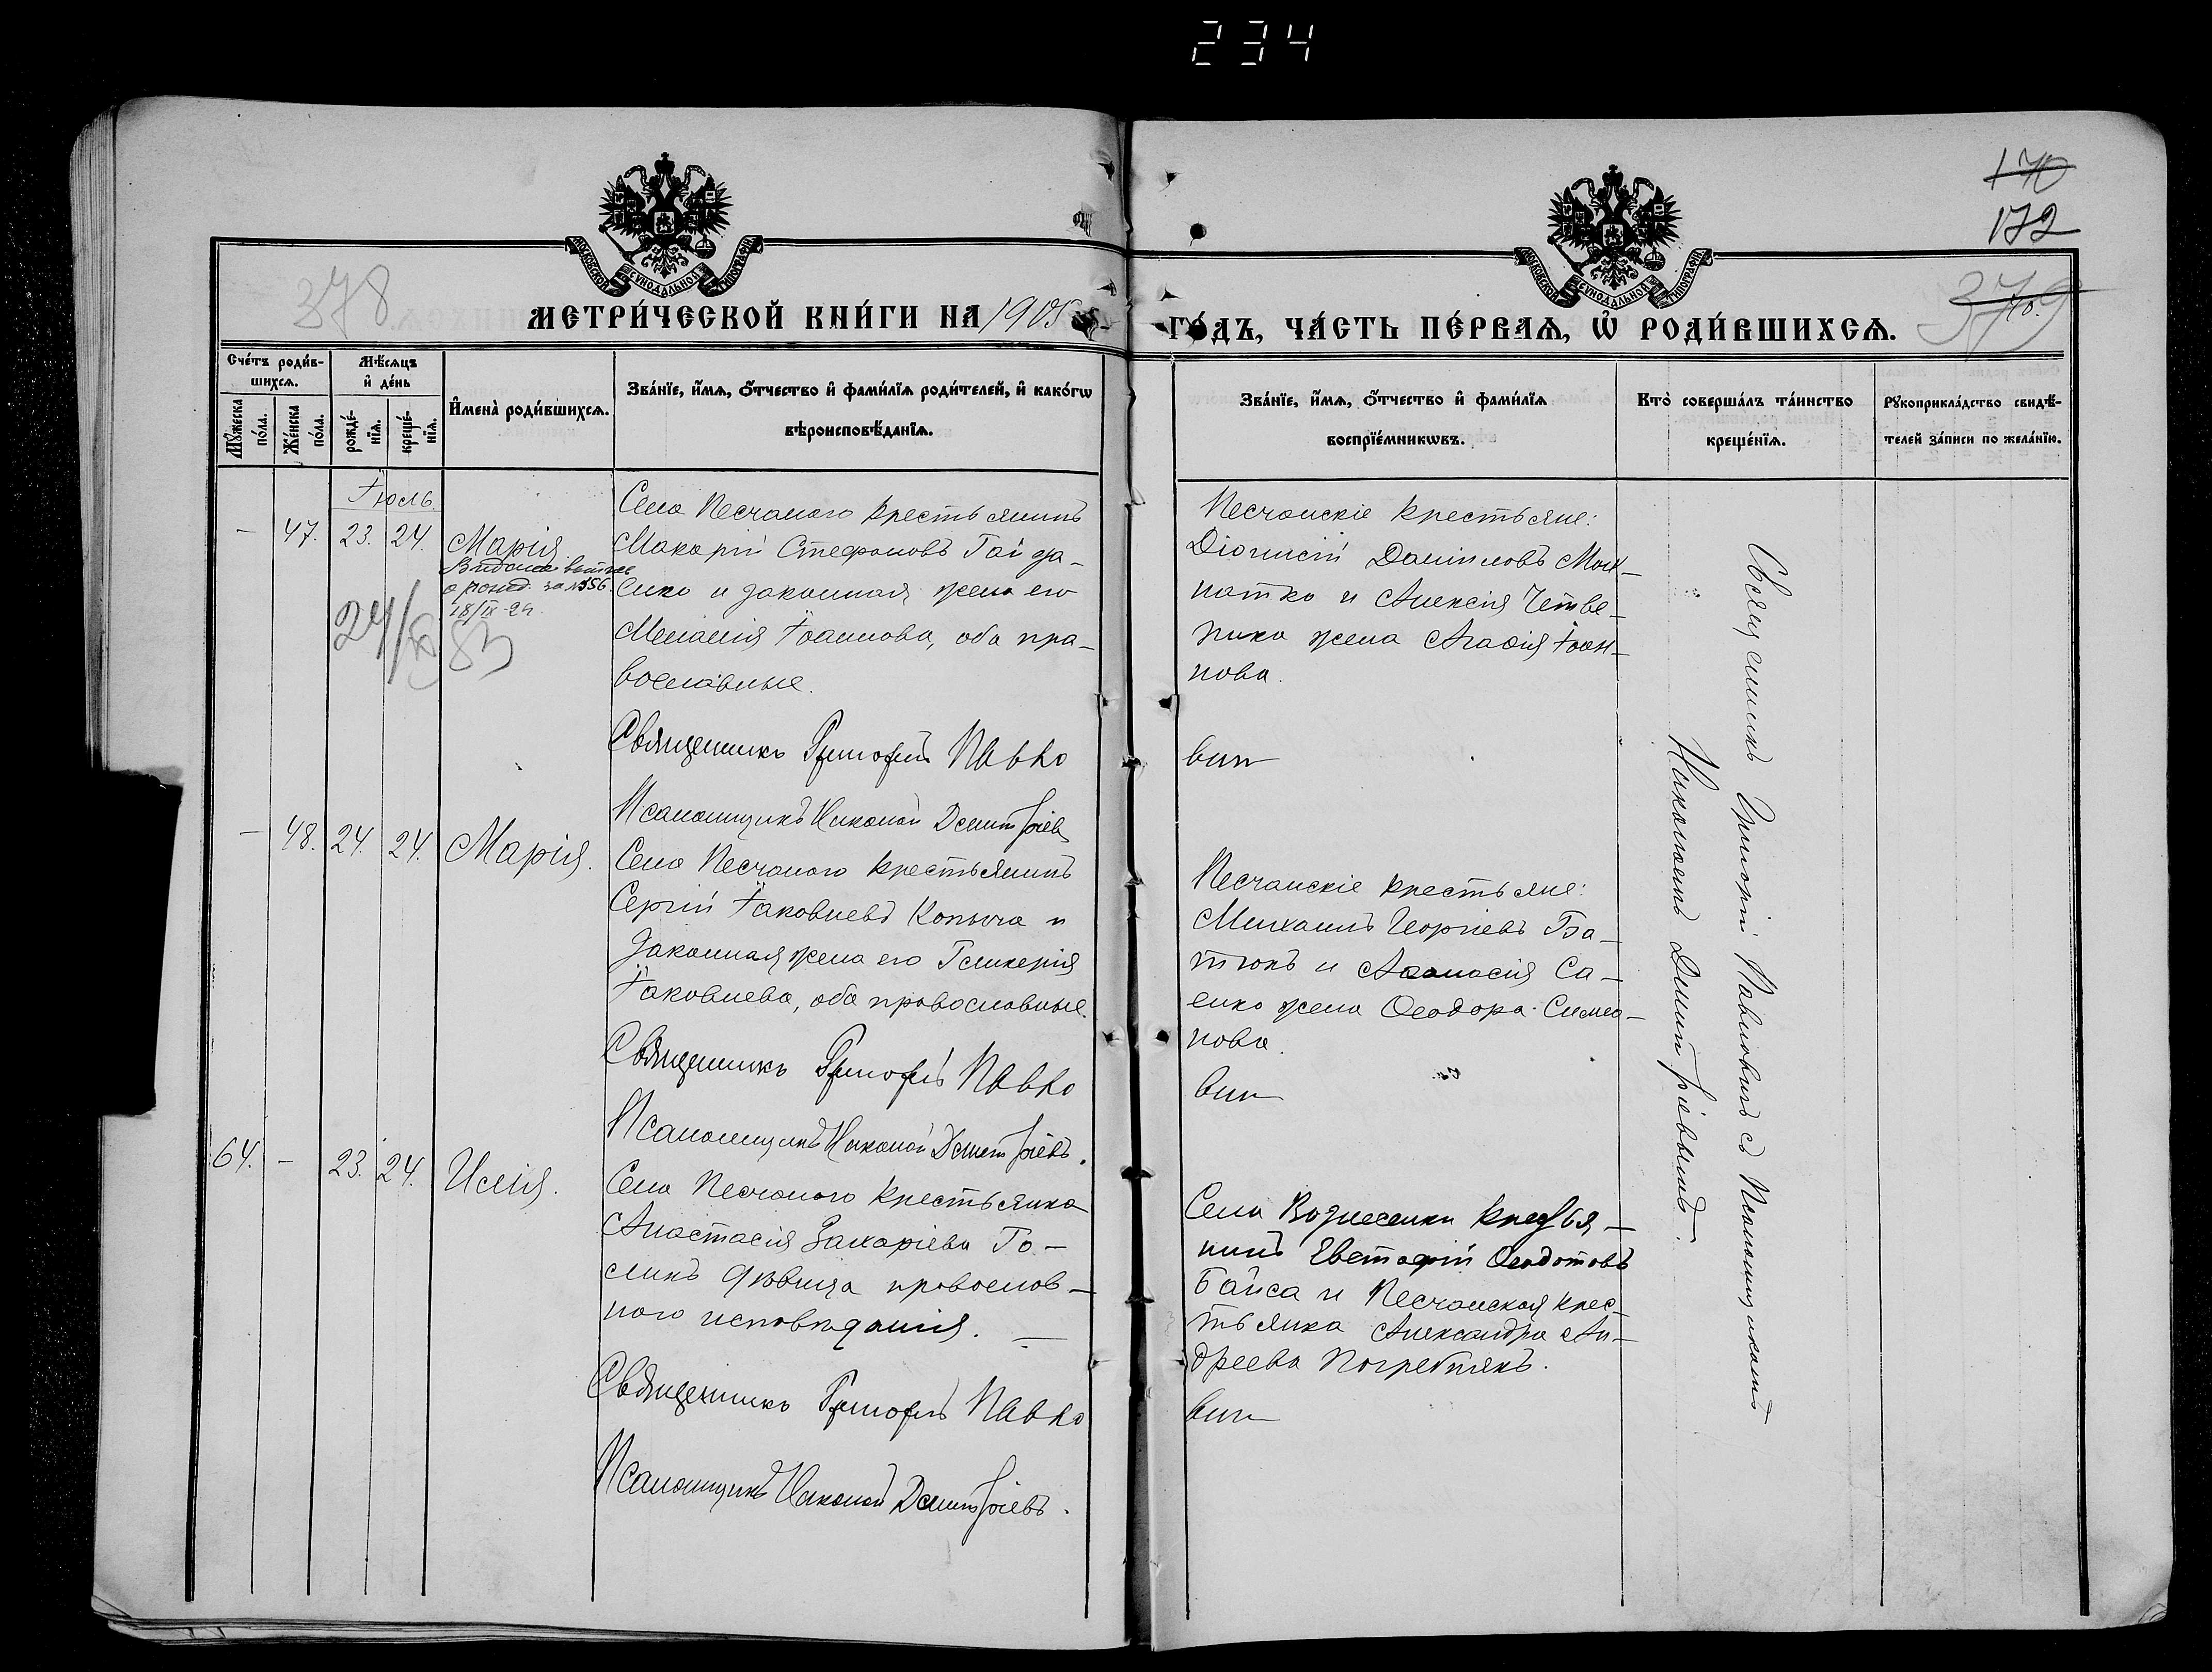 234
170
172
378
379
МОСКОВСКОЙ СУНОДАЛЬНОЙ ТИПОГРАФІИ
МОСКОВСКОЙ СУНОДАЛЬНОЙ ТИПОГРАФІИ
МЕТРИ́ЧЕСКОЙ КНИ́ГИ НА 1905
ГО́ДЪ, ЧА́СТЬ ПЕ́РВАѦ, Ѡ РОДИ́ВШИХСѦ.
Сче́тъ роди́в-
шихсѧ.
Мꙋ́жеска
по́ла.
Же́нска
по́ла.
Мѣ́сѧцъ
и де́нь
рожде́-
нїѧ.
креще́-
нїѧ.
И҆мена̀ роди́вшихсѧ.
Зва́нїе, и҆́мѧ, ѻ҆́тчество и҆ фами́лїѧ роди́телей, и҆ како́гѡ
вѣроисповѣ́данїѧ.
Зва́нїе, и҆́мѧ, ѻ҆́тчество и҆ фами́лїѧ
воспрїе́мникѡвъ.
Кто̀ соверша́лъ та́инство
креще́нїѧ.
Рꙋкоприкла́дство свидѣ́-
телей за́писи по жела́нїю.
Іюль
- 47. 23. 24. Марія.
Выдана выпись
о рожд. за №356
18/IX-24
24/XI 83
Села Песчаного крестьянинъ
Макарій Стефановъ Гайда-
енко и законная жена его
Меланія Іоаннова, оба пра-
вославные.
Священникъ Григорій Павко
Псаломщикъ Николай Дмитріевъ
Песчанскіе крестьяне:
Діонисій Даніиловъ Мох-
натко и Алексія Четве-
рика жена Агафія Іоан-
нова.
- 48. 24. 24. Марія.
Села Песчаного крестьянинъ
Сергій Іаковлевъ Копыча и
законная жена его Гликерія
Іаковлева, оба православные.
Священникъ Григорій Павко
Псаломщикъ Николай Дмитріевъ.
Песчанскіе крестьяне:
Михаилъ Георгіевъ Ба-
тюкъ и Аѳанасія Са-
енко жена Ѳеодора Симео-
нова.
64. - 23. 24. Илія.
Села Песчаного крестьянка
Анастасія Захаріева Го-
ликъ дѣвица православ-
наго исповѣданія.
Священникъ Григорій Павко
Псаломщикъ Николай Дмитріевъ.
Села Вознесенки крестья-
нинъ Евстафій Ѳеодотовъ
Байса и Песчанская крес-
тьянка Александра Ан-
дреева Погребнякъ.
Священникъ Григорій Павловичъ съ Псаломщикомъ
Николаемъ Дмитріевымъ.